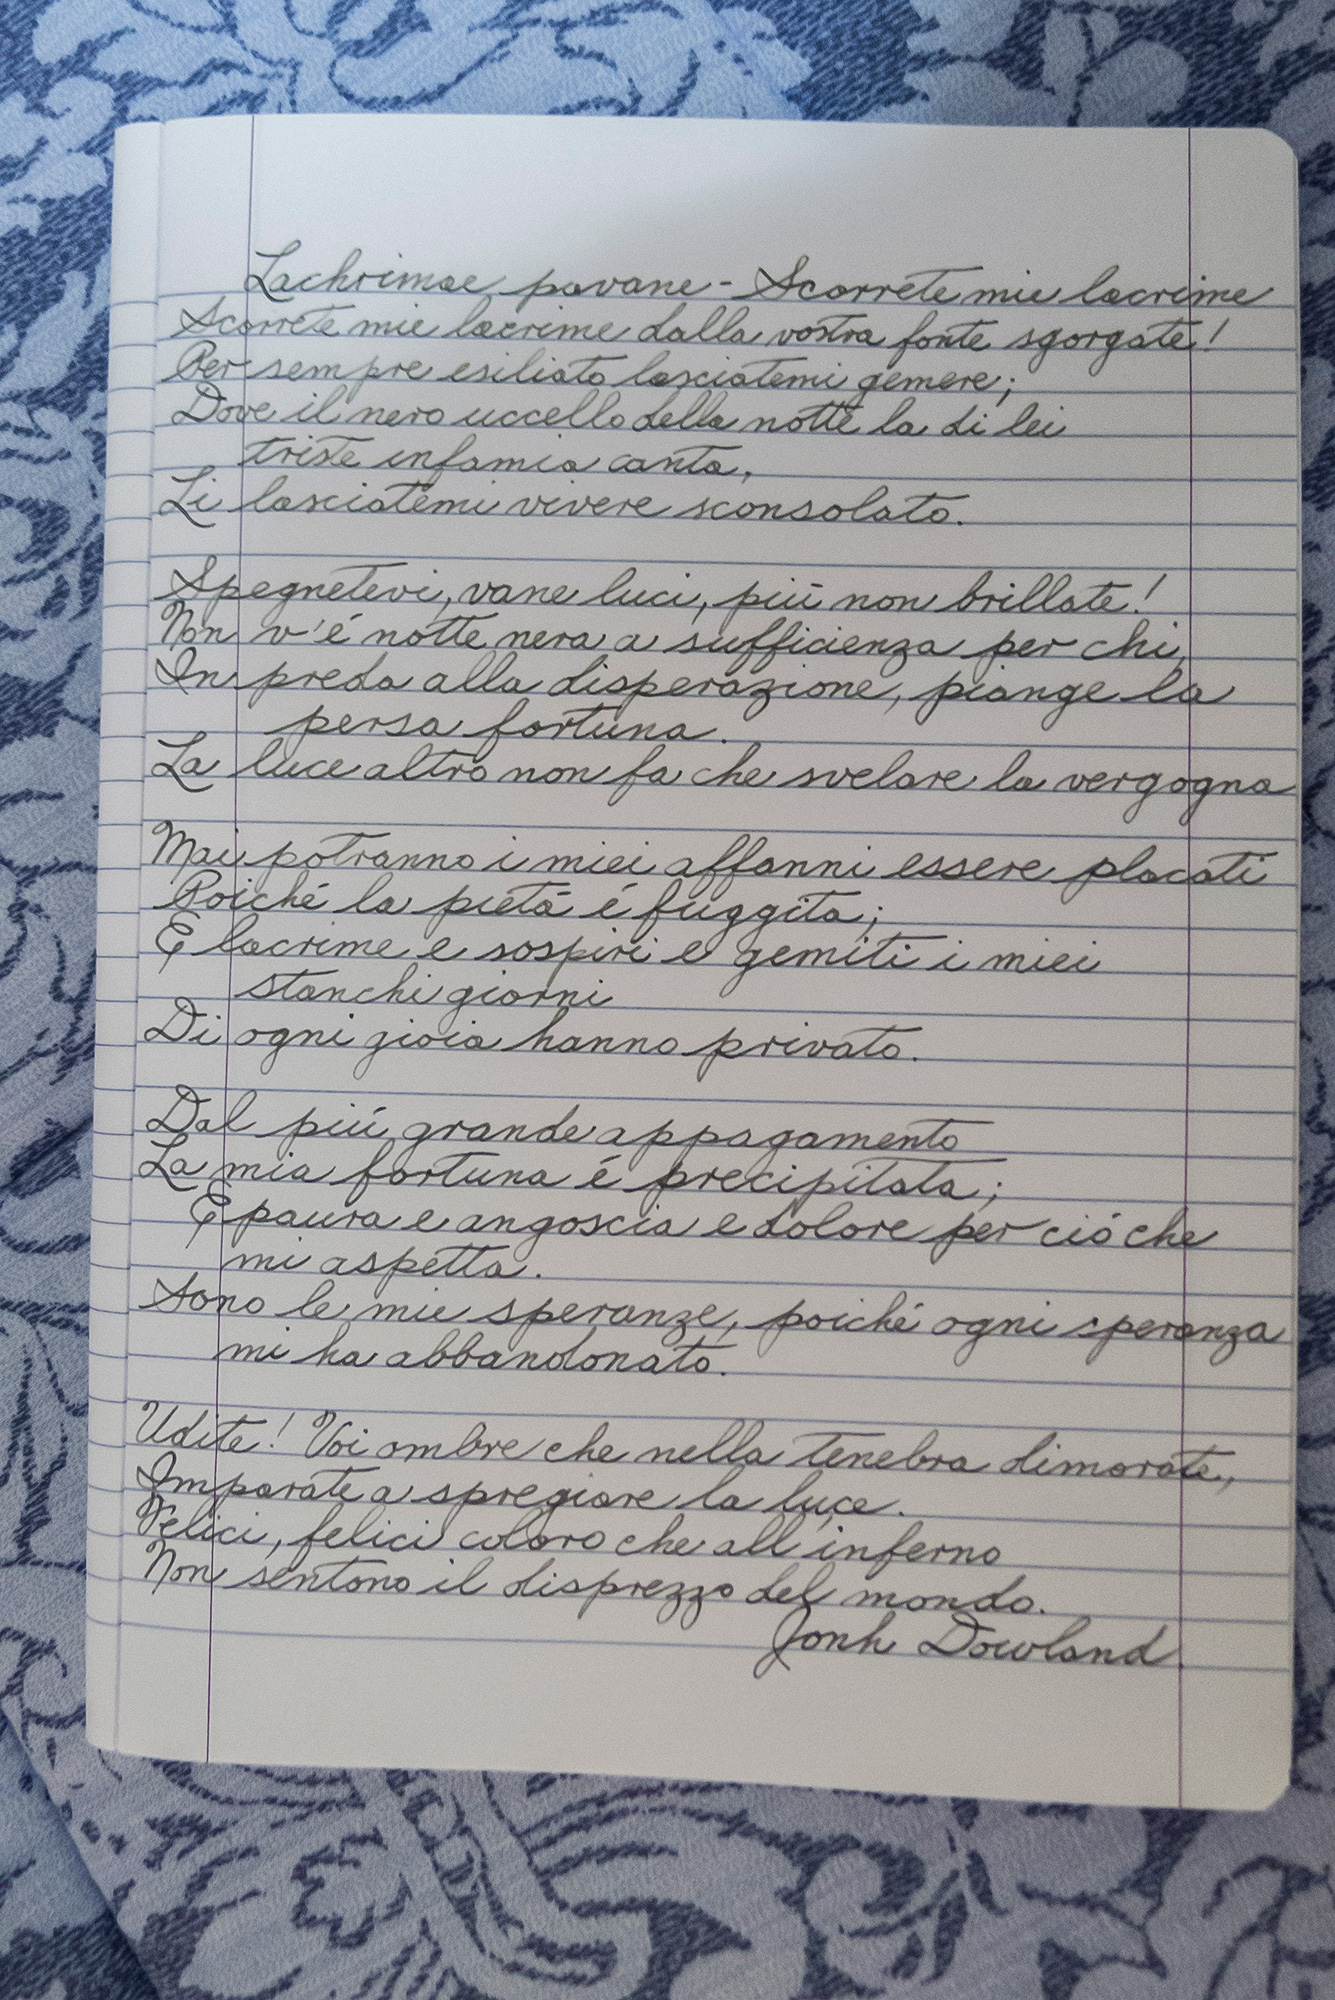 Lachrimae pavane - Scorrete mie lacrime
Scorrete mie lacrime dalla vostra fonte sgorgate!
Per sempre esiliato lasciatemi gemere;
Dove il nero uccello della notte la di lei
triste infamia canta,
Li lasciatemi vivere sconsolato.
Spegnetevi, vane luci, piú non brillate!
Non v'é notte nera a sufficienza per chi,
In preda alla disperazione, piange la
persa fortuna.
La luce altro non fa che svelare la vergogna
Mai potranno i miei affanni essere placati
Poiché la pietá é fuggita;
E lacrime e sospiri e gemiti i miei
stanchi giorni
Di ogni gioia hanno privato.
Dal piú grande appagamento
La mia fortuna é precipitata;
E paura e angoscia e dolore per ció che
mi aspetta.
Sono le mie speranze, poiché ogni speranza
mi ha abbandonato.
Udite! Voi ombre che nella tenebra dimorate,
Imparate a spregiare la luce.
Felici, felici coloro che all'inferno
Non sentono il disprezzo del mondo.
Jonh Dowland